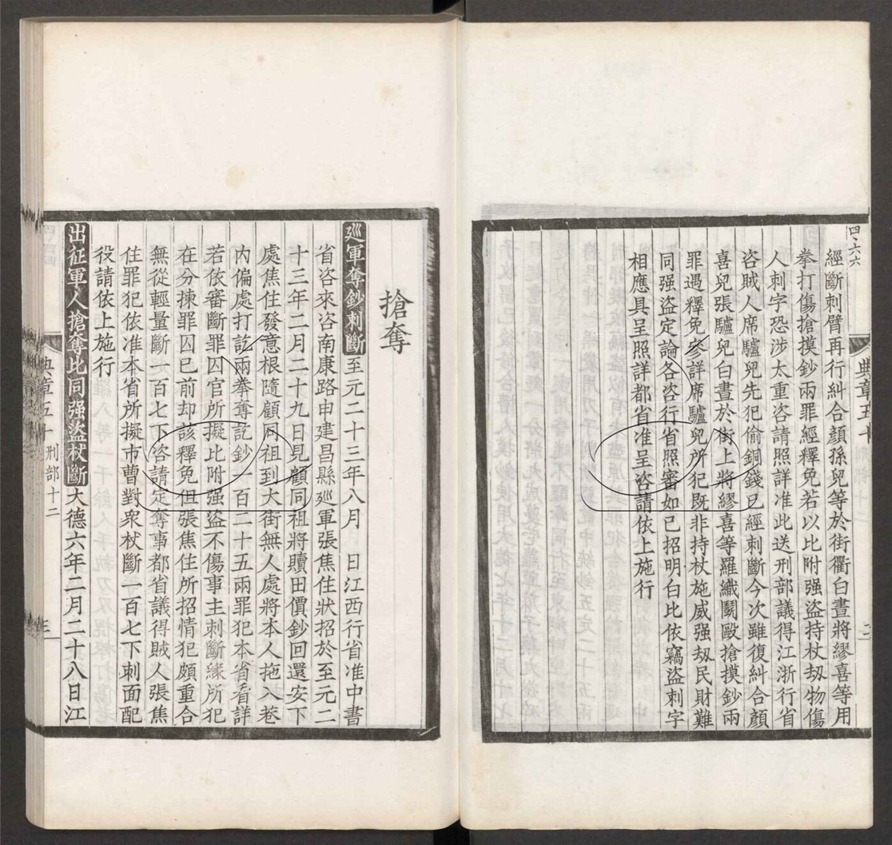 典章五十
經斷刺臂再行糾合顏孫兒等於街衢白晝將繆喜等用
拳打傷搶摸鈔兩罪經釋免若以比附强盜持杖刼物傷
人刺字恐涉太重咨請照詳准此送刑部議得江浙行省
咨賊人席驢兒先犯偷銅錢已經刺斷今次雖復糾合顏
喜兒張驢兒白晝於街上將繆喜等羅織鬭毆搶摸鈔兩
罪遇釋免參詳席驢兒所犯既非持杖施威强刼民財難
同强盜定論各咨行省照審如已招明白比依竊盜刺字
相應具呈照詳都省准呈咨請依上施行
搶奪
廵軍奪鈔刺斷至元二十三年八月 日江西行省准中書
省咨來咨南康路申建昌縣廵軍張焦住狀招於至元二
十三年二月二十九日見顧同祖將贖田價鈔回還安下
處焦住發意根隨顧同祖到大街無人處將本人拖入巷
內偏處打訖兩拳奪訖鈔一百二十五兩罪犯本省看詳
若依審斷罪囚官所擬比附强盜不傷事主刺斷緣所犯
在分揀罪囚已前却該釋免但張焦住所招情犯頗重合
無從輕量斷一百七下咨請定奪事都省議得賊人張焦
住罪犯依准本省所擬市曹對衆杖斷一百七下刺面配
役請依上施行
出征軍人搶奪比同强盜杖斷大德六年二月二十八日江
典章五十 刑部十二